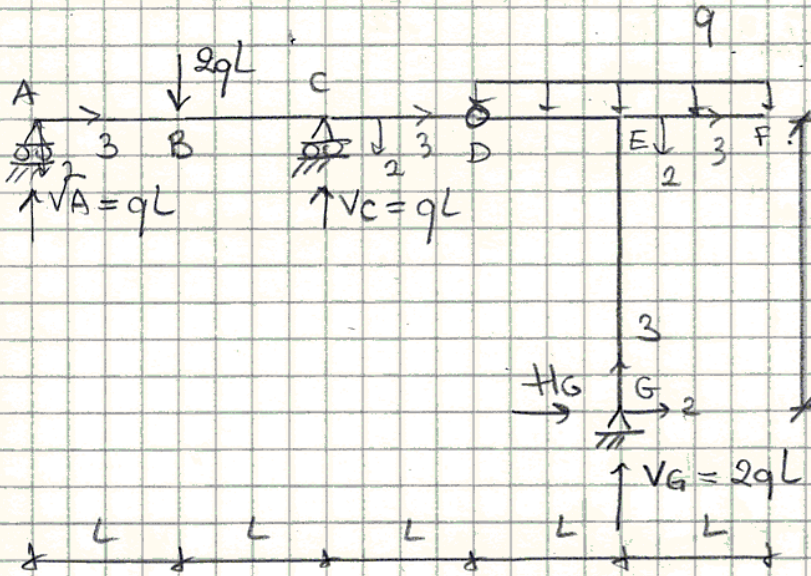 q
2qL
A
C
3
B
3
D
E
3
F
2
2
2
VA = qL
VC = qL
3
HG
G
2
VG = 2qL
L
L
L
L
L